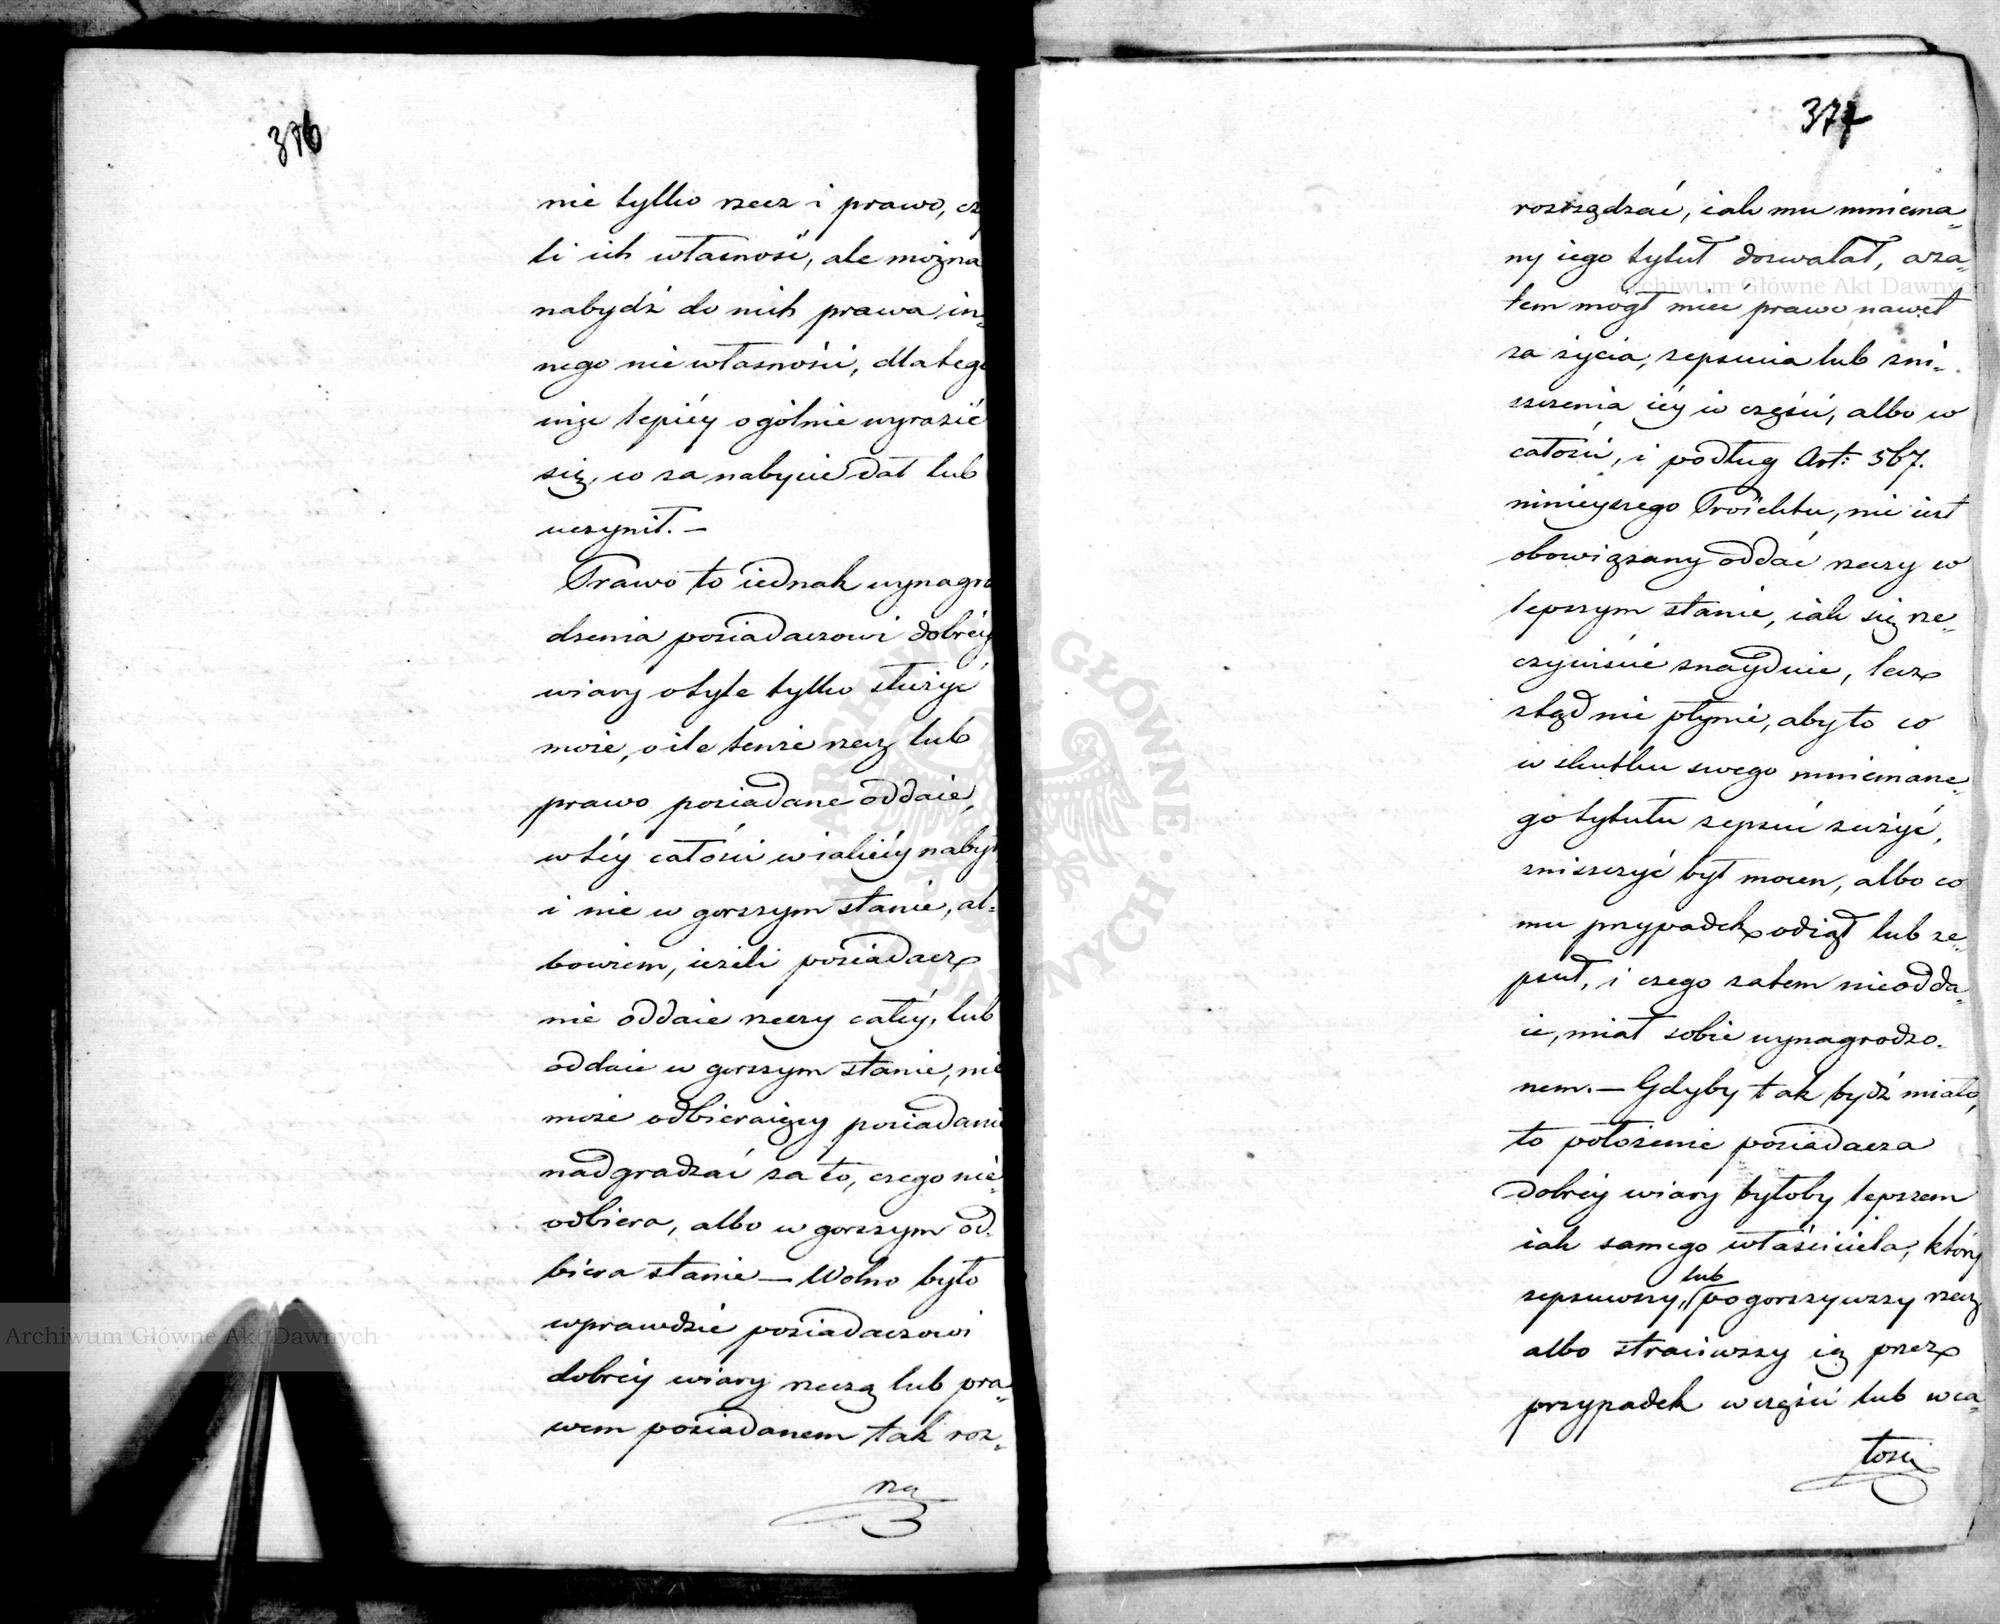 376
nie tylko rzecz i prawo, cz
li ich własność, ale można
nabydź do nich prawa in„
nego nie własności, dlatego
niże lepiéy ogólnie wyrazić
się, co za nabycie dał lub
uczynił. —
Prawo to iednak wynagro
dzenia posiadaczowi dobréy
wiary o tyle tylko służyć
może, o ile tenże rzecz lub
prawo posiadane oddaie,
w téy całości w iakiéy nabył
i nie w gorszym stanie, al„
bowiem, ieżeli posiadacz
nie oddaie rzeczy całéy, lub
oddaie w gorszym stanie, nie
może odbieraiący posiadanie
nadgradzać za to, czego nie„
odbiera, albo w gorszym od„
biera stanie — Wolno było
wprawdzie posiadaczowi
dobréy wiary rzeczą lub pra„
wem posiadanem tak roz„
rzą
377
rozrządzać, iak mu mniema„
ny iego tytuł dozwalał, a za„
tem mógł mieć prawo nawet
za życia, zepsucia lub zni„
szczenia iéy w części, albo w
całości, i podług Art: 567.
ninieyszego Proiektu, nie iest
obowiązany oddać rzeczy w
lepszym stanie, iak się rze„
czywiście znayduie, lecz
ztąd nie płynie, aby to co
w skutku swego mnieman„
go tytułu zepsuć zużyć,
zniszczyć był mocen, albo co
mu przypadek odiął lub ze„
psuł, i czego zatem nieodda„
ie, miał sobie wynagrodzo„
nem. — Gdyby tak bydź miało,
to położenie posiadacza
dobréy wiary byłoby lepszem
iak samego właściciela, który
zepsuwszy, lub pogorszywszy rzecz
albo straciwszy ią przez
przypadek w części lub w ca„
łości
Archiwum Główne Akt Dawnych
Archiwum Główne Akt Dawnych
ARCHIWUM GŁÓWNE AKT DAWNYCH